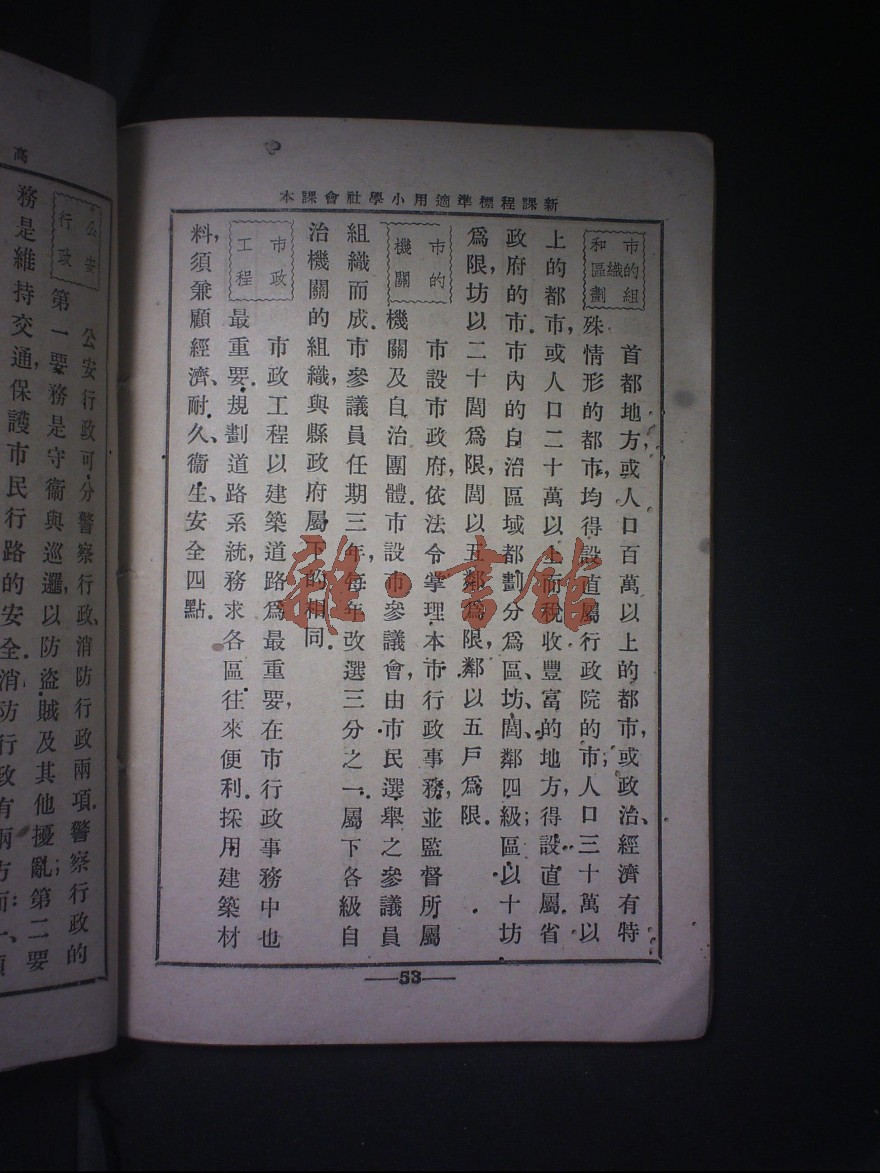 新課程標準適用小學社會課本
市的組
織
和區劃
首都地方,或人口百萬以上的都市,或政治、經濟有特
殊情形的都市,均得設直屬行政院的市;人口三十萬以
上的都市,或人口二十萬以上而稅收豐富的地方,得設直屬省
政府的市.市內的自治區域都劃分爲區、坊、閭、鄰四級;區以十坊
爲限,坊以二十閭爲限,閭以五鄰爲限,鄰以五戶爲限.
市的
機關
市設市政府,依法令掌理本市行政事務,並監督所屬
機關及自治團體.市設市參議會,由市民選舉之參議員
組織而成.市參議員任期三年,每年改選三分之一.屬下各級自
治機關的組織,與縣政府屬下的相同.
市政
工程
市政工程以建築道路爲最重要,在市行政事務中也
最重要.規劃道路系統,務求各區往來便利.採用建築材
料,須兼顧經濟、耐久、衞生、安全四點.
53
雜·書館
高
公安
行政
公安行政可分警察行政、消防行政兩項.警察行政的
第一要務是守衞與巡邏,以防盜賊及其他擾亂;第二要
務是維持交通,保護市民行路的安全.消防行政有兩方面:一、